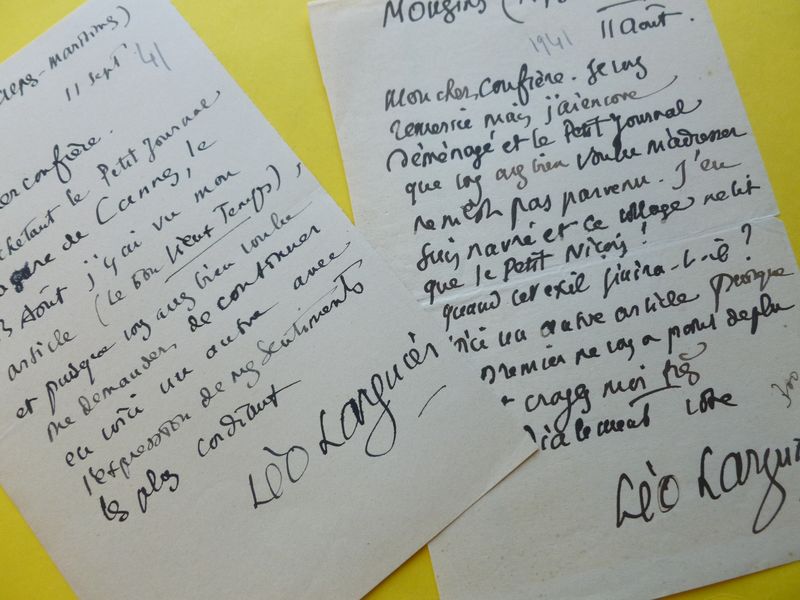 Alpes-maritimes)
11 Sept 41
cher confrère.
achetant le Petit Journal
gare de Cannes, le
Août j'y ai vu mon
article (Le bon vieux Temps),
et puisque vous avez bien voulu
me demander de continuer
en voici un autre avec
l'expression de mes sentiments
les plus cordiaux
Léo Larguier
Mougins
1941
11 août.
Mon cher Confrère. Je vous
remercie mais j'ai encore
déménagé et le Petit Journal
que vous avez bien voulu m'adresser
ne m'est pas parvenu. J'en
suis navré et ce village ne lit
que le Petit Niçois !
quand cet exil finira-t-il ?
Voici un autre article puisque
premier ne vous a point déplu
croyez moi très
cialement vôtre
300
Léo Largui